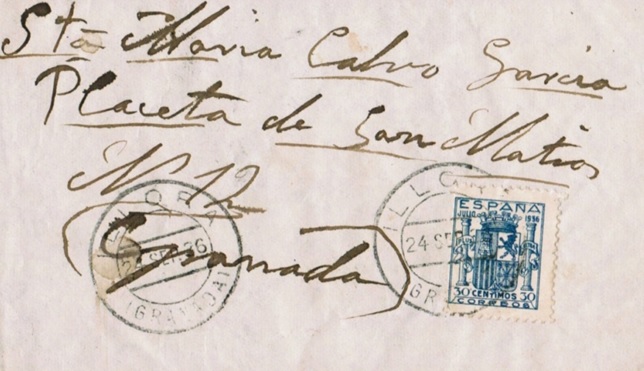 Sta Maria Calvo Garcia
Placeta de San Matias
N 12
Granada
ILLORA
24 SEP. 36
(GRANADA)
ILLO
24 SE
GR
ESPAÑA
JULIO 1936
30 CENTIMOS 30
CORREOS